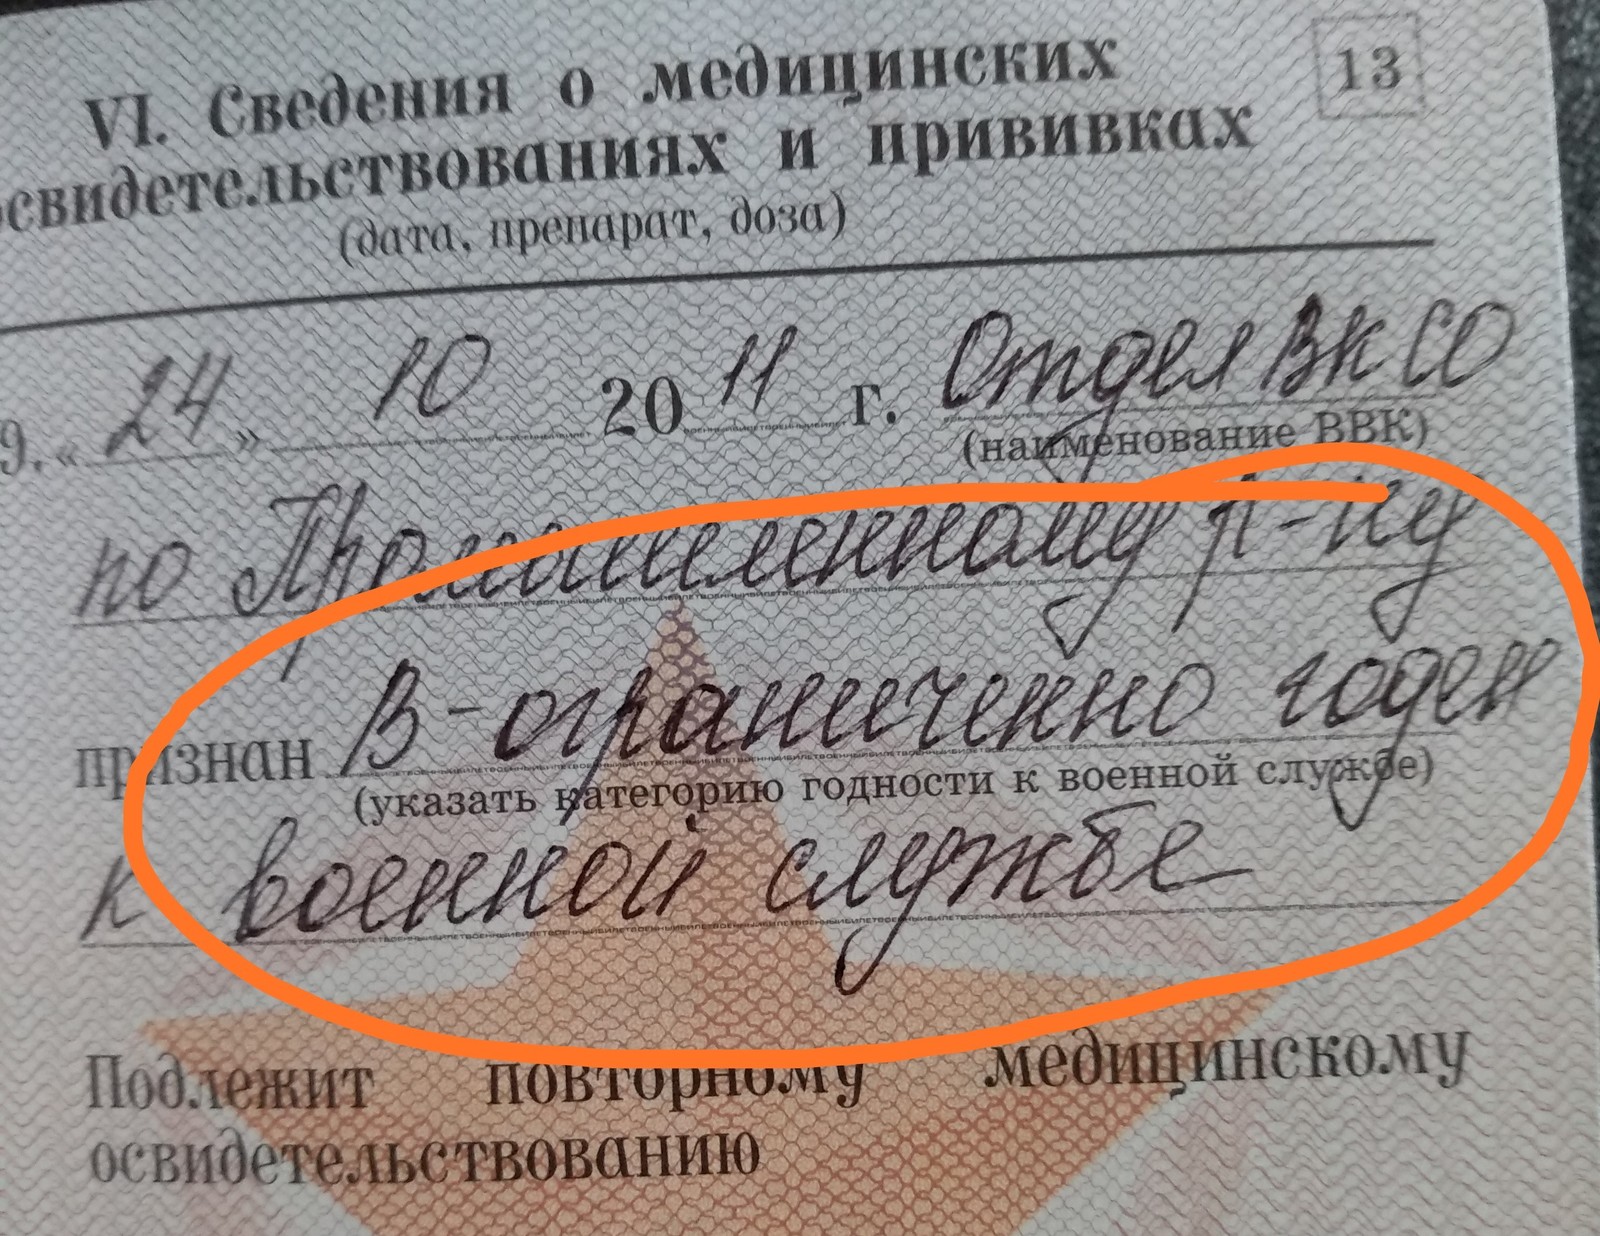 13
VI. Сведения о медицинских
освидетельствованиях и прививках
(дата, препарат, доза)
9. «24» 10 2011 г. Отдел ВК СО
(наименование ВВК)
по Промышленному р-ну
признан В-ограниченно годен
(указать категорию годности к военной службе)
к военной службе
Подлежит повторному медицинскому
освидетельствованию